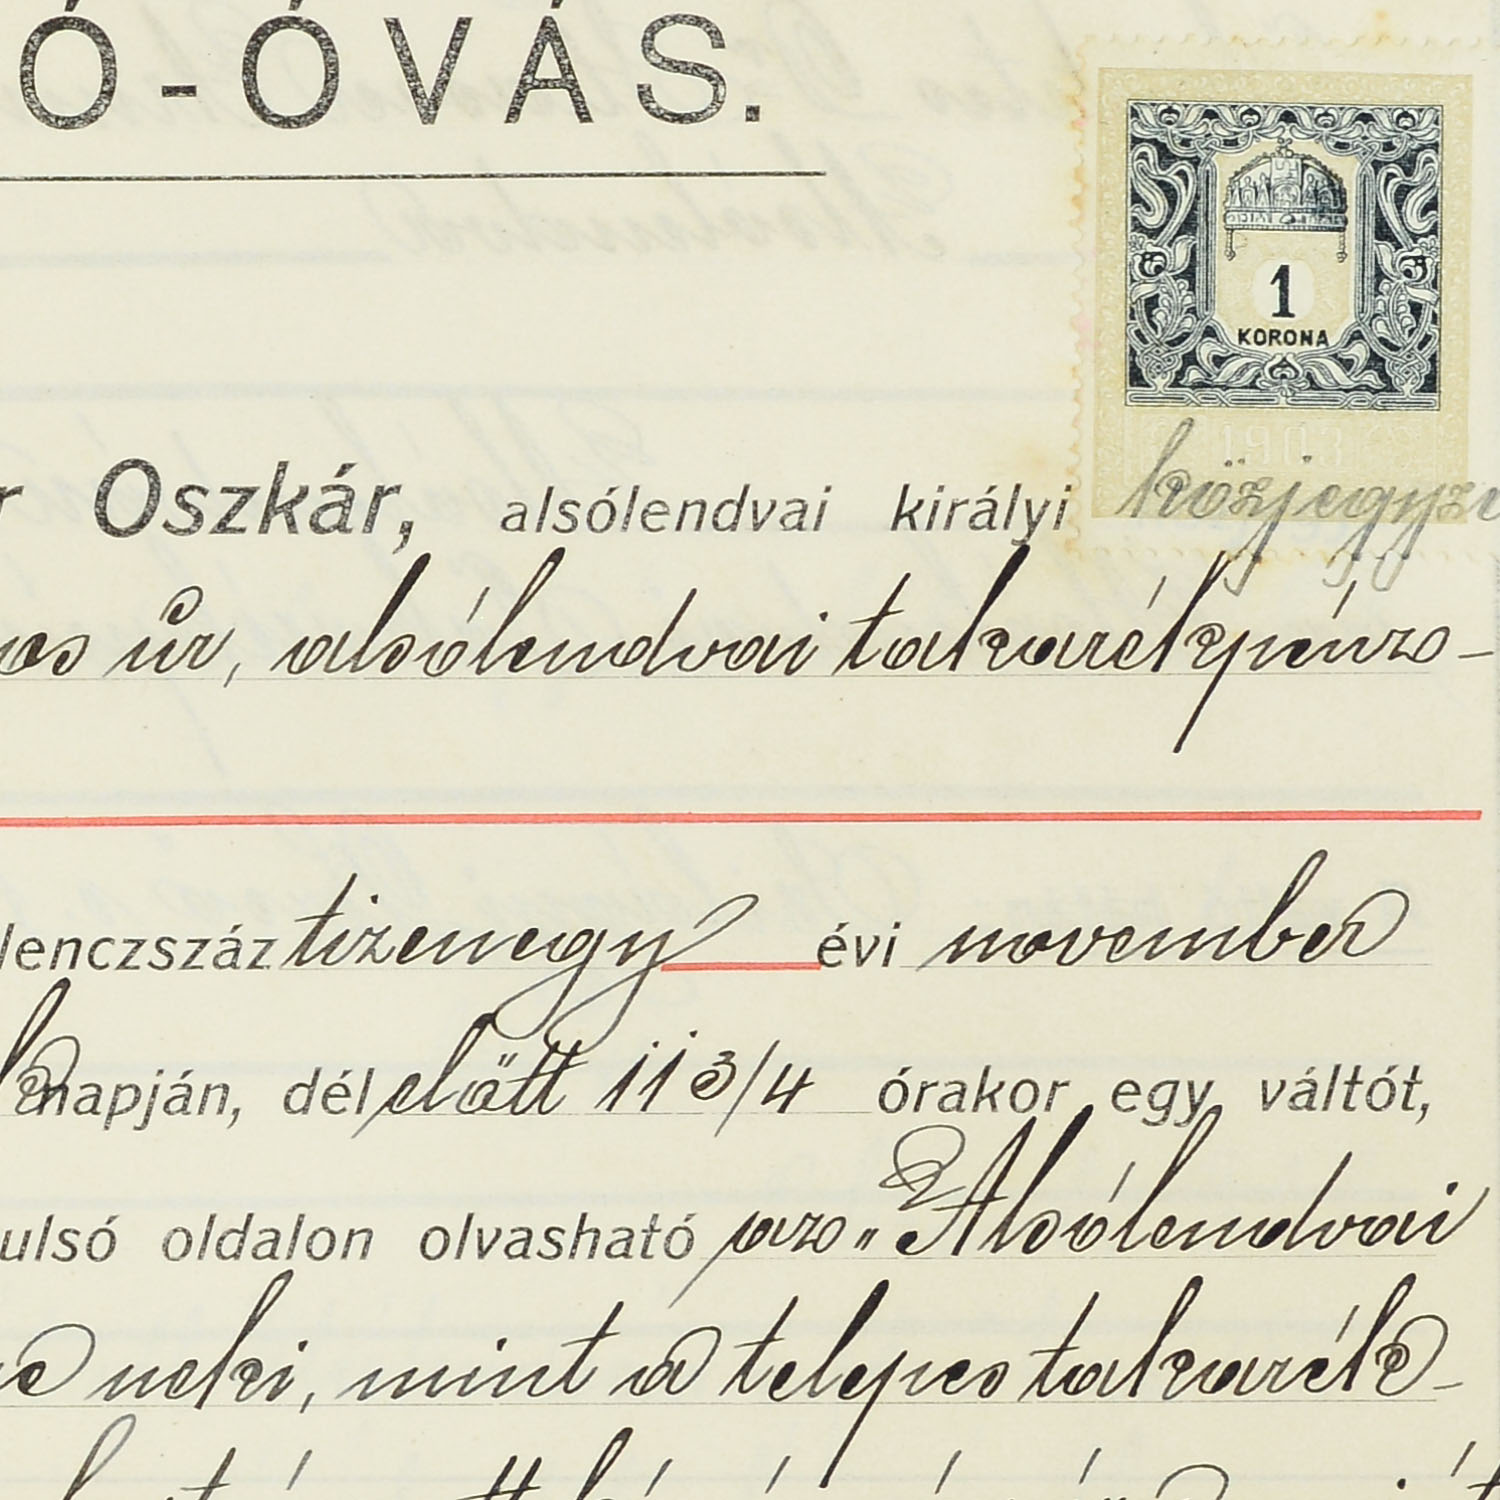 Ó-ÓVÁS.
1
KORONA
1903
r Oszkár, alsólendvai királyi közjegyző
os úr, alsólendvai takarékpénz-
lenczszáz tizenegy évi november
napján, dél előtt 11 3/4 órakor egy váltót,
ulsó oldalon olvasható az „Alsólendvai
neki, mint a telepes takarék-